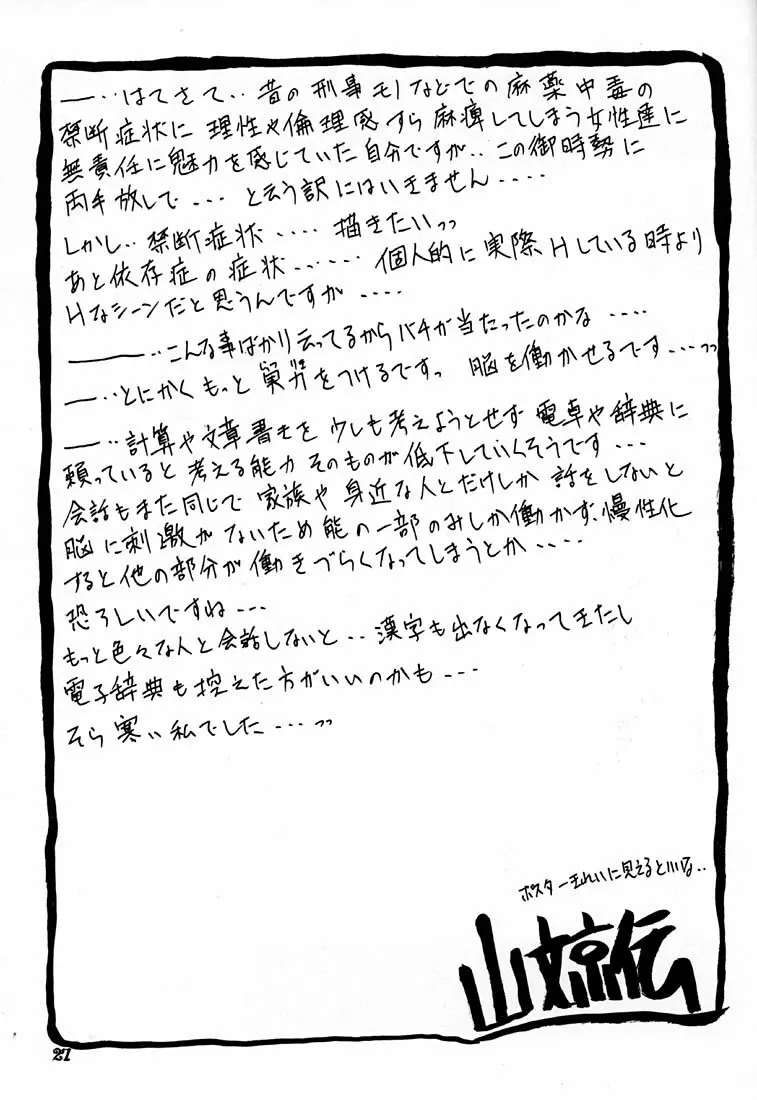 ――‥はてさて‥昔の刑事モノなどでの麻薬中毒の
禁断症状に理性や倫理感すら麻痺してしまう女性達に
無責任に魅力を感じていた自分ですが‥この御時勢に
両手放しで‥‥と云う訳にはいきません‥‥
しかし‥禁断症状‥‥描きたいっっ
あと依存症の症状‥‥‥個人的に実際Hしている時より
Hなシーンだと思うんですが‥‥
――――‥こんな事ばかり云ってるからバチが当たったのかな‥‥
――‥とにかくもっとをつけるですっ 脳を働かせるです‥‥っっ
――‥計算や文章書きを少しも考えようとせず電卓や辞典に
頼っていると考える能力そのものが低下していくそうです‥‥
会話もまた同じで家族や身近な人とだけしか話をしないと
脳に刺激がないため能の一部のみしか働かず、慢性化
すると他の部分が働きづらくなってしまうとか‥‥
恐ろしいですね‥‥
もっと色々な人と会話しないと‥漢字も出なくなってきたし
電子辞典も控えた方がいいのかも‥‥
そら寒い私でした‥‥っっ
ポスターきれいに見えるといいな‥
山文京伝
27